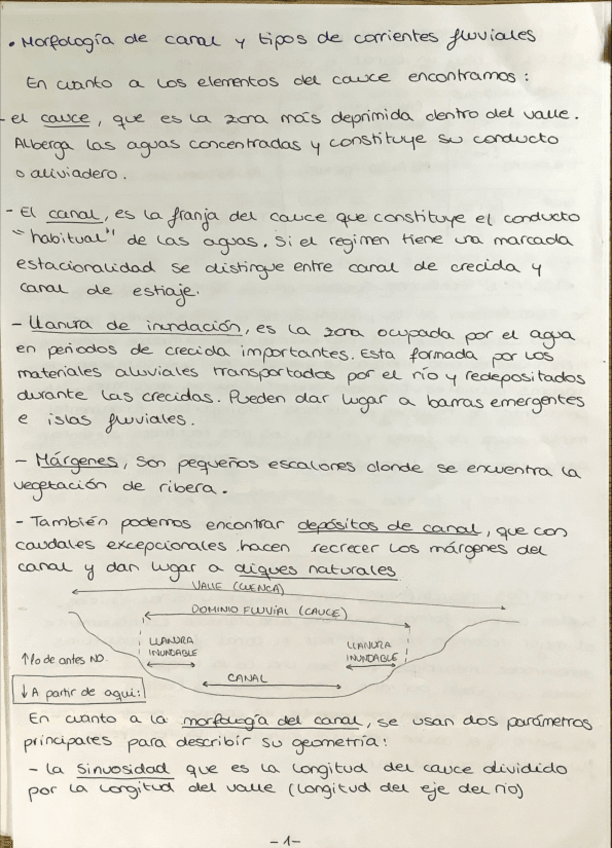 • Morfología de canal y tipos de corrientes fluviales
En cuanto a los elementos del cauce encontramos:
- el cauce, que es la zona más deprimida dentro del valle.
Alberga las aguas concentradas y constituye su conducto
o aliviadero.
- El canal, es la franja del cauce que constituye el conducto
"habitual" de las aguas. Si el regimen tiene una marcada
estacionalidad se distingue entre canal de crecida y
canal de estiaje.
- Llanura de inundación, es la zona ocupada por el agua
en periodos de crecida importantes. Esta formada por los
materiales aluviales transportados por el río y redepositados
durante las crecidas. Pueden dar lugar a barras emergentes
e islas fluviales.
- Márgenes, son pequeños escalones donde se encuentra la
vegetación de ribera.
- También podemos encontrar depósitos de canal, que con
caudales excepcionales hacen recrecer los márgenes del
canal y dan lugar a diques naturales
VALLE (CUENCA)
DOMINIO FLUVIAL (CAUCE)
LLANURA
INUNDABLE
LLANURA
INUNDABLE
CANAL
↑ lo de antes NO.
↓ A partir de aqui:
En cuanto a la morfología del canal, se usan dos parámetros
principales para describir su geometría:
- la sinuosidad que es la longitud del cauce dividido
por la longitud del valle (longitud del eje del río)
- 1 -